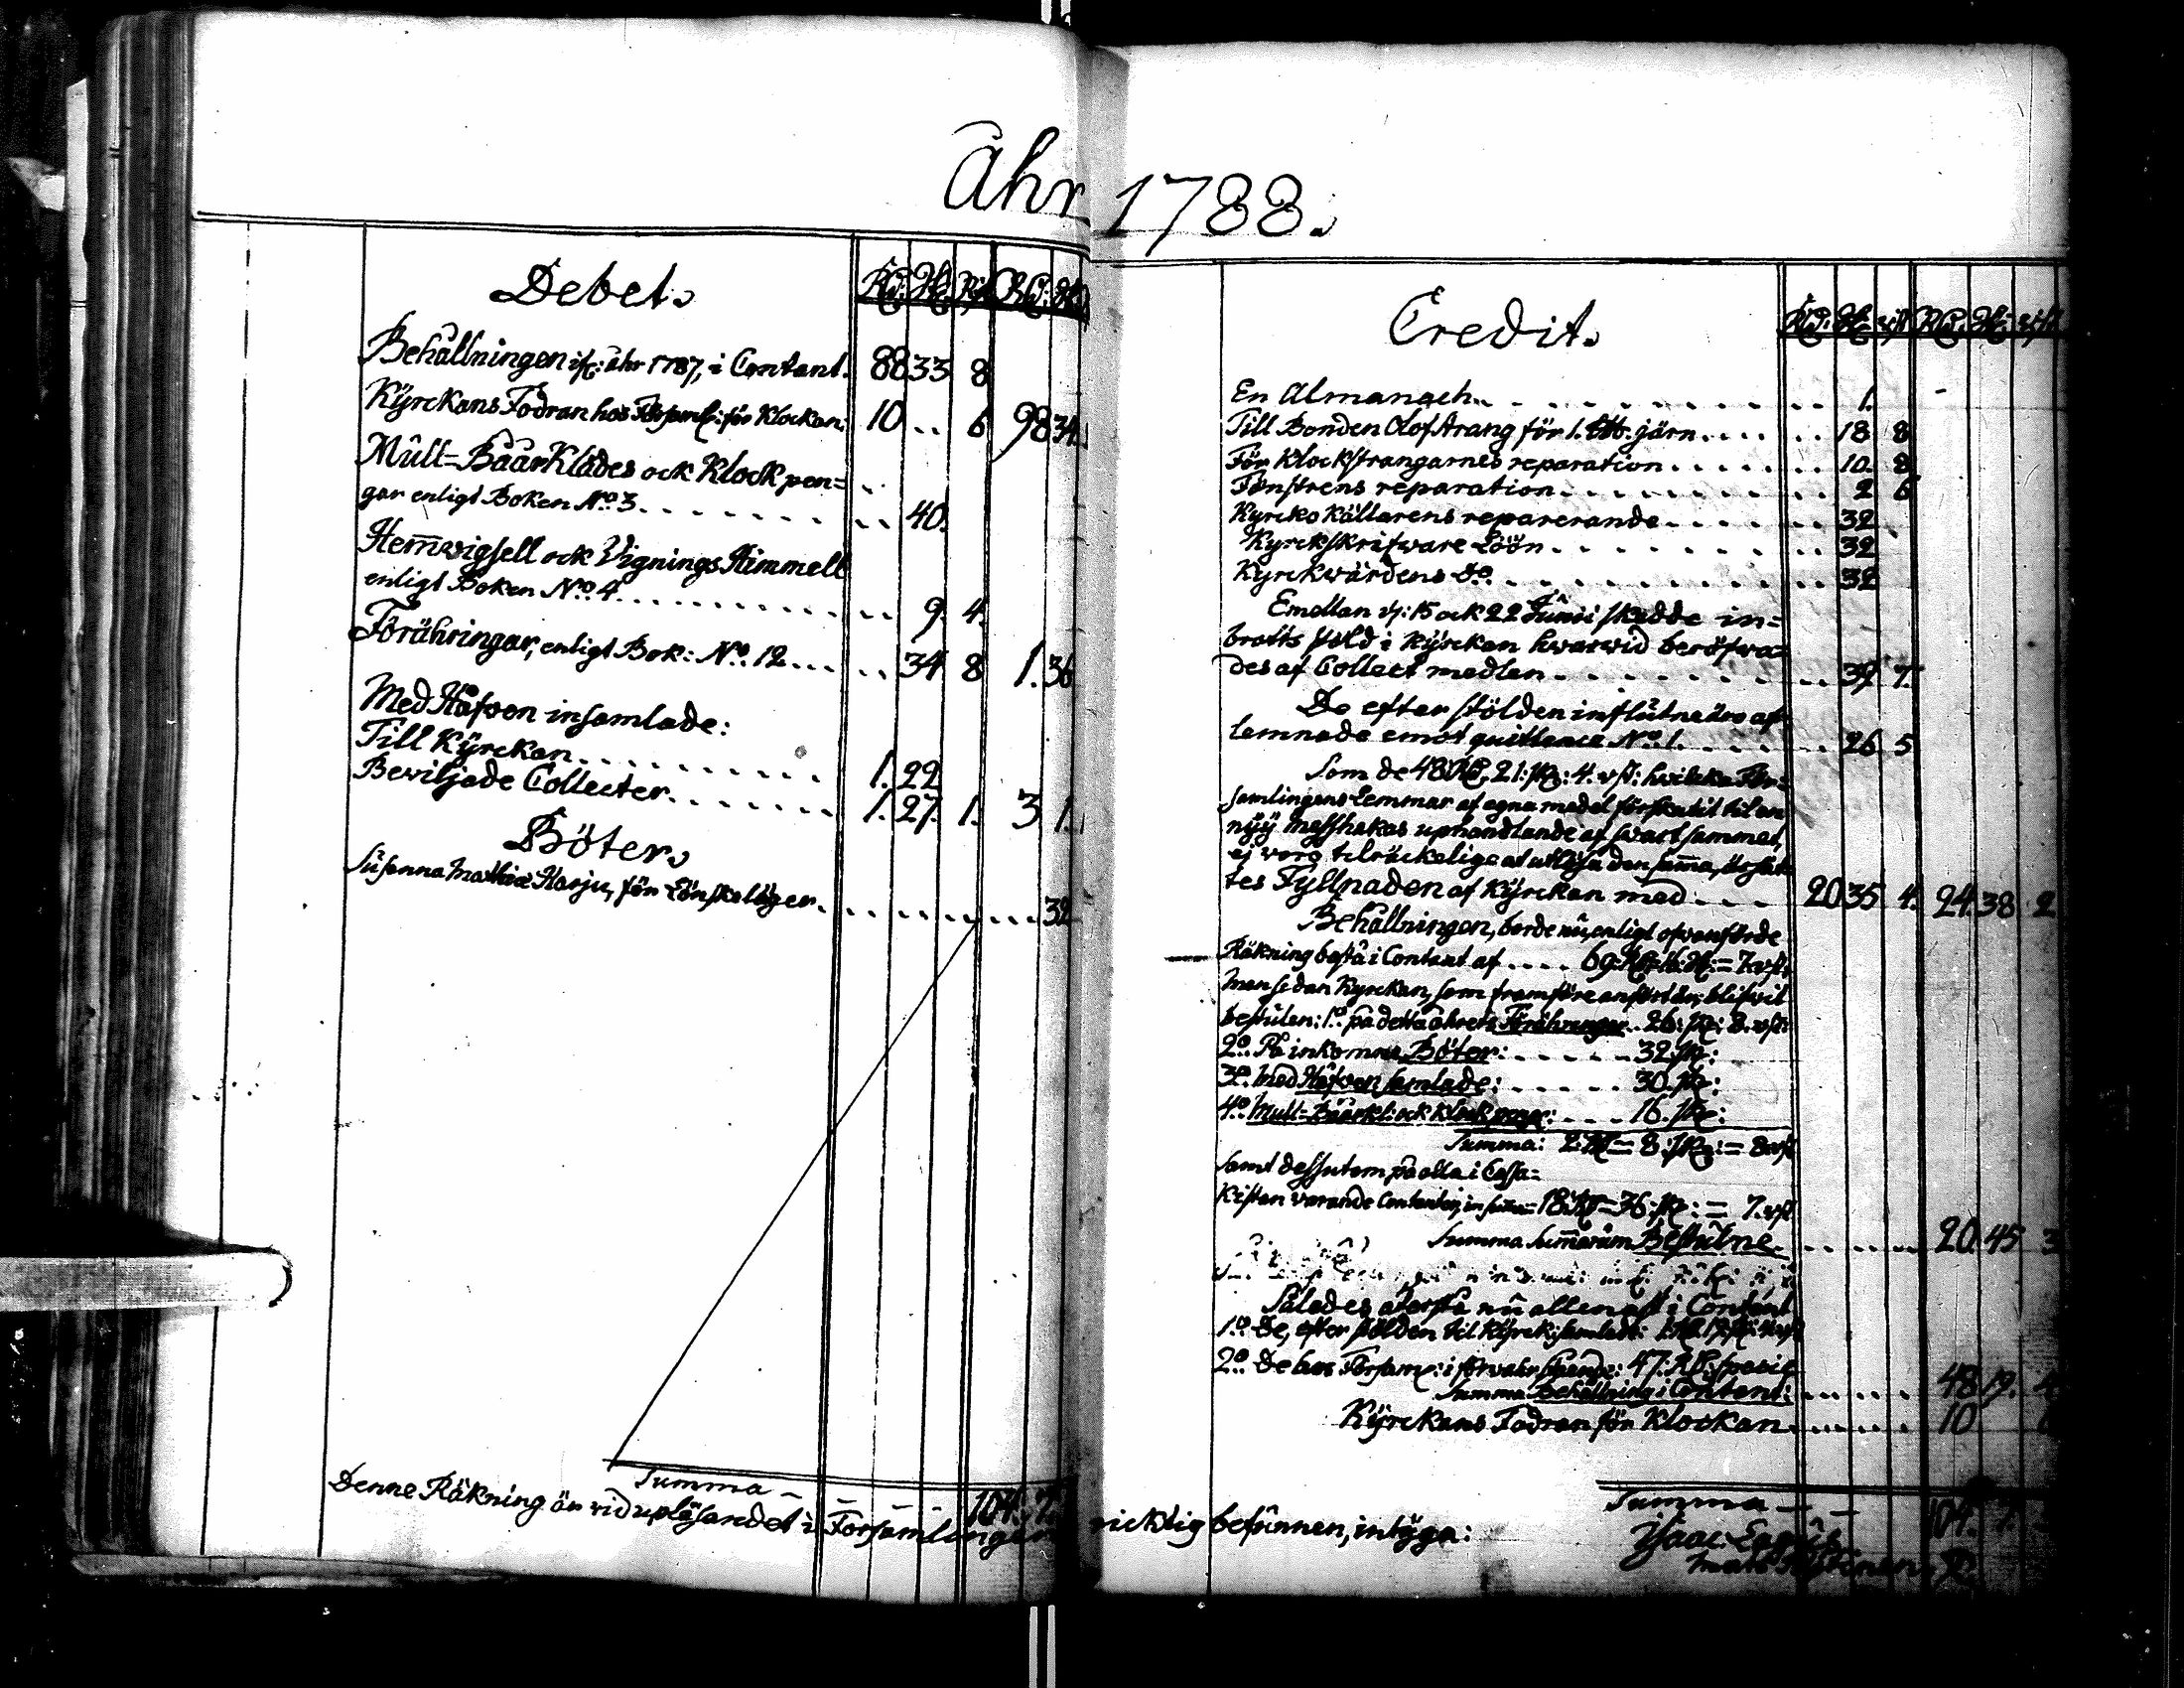 Åhr 1788.
Debet.
Rd. sk. rst. Rd. sk.
Behållningen ifr: åhr 1787, i Contant. 88 33 8
Kÿrckans Fodran hos Församl: för Klockan. 10 .. 6 98 34.
Mull-Baarklädes ock Klock pen=
gar enligt Boken No. 3. . . . . . . . . . 40.
Hemvigsell ock Vignings Himmell
enligt Boken No. 4. . . . . . . . . . . . 9. 4.
Förähringar, enligt Bok: No. 12. . . . . . 34 8 1. 36
Med Håfven insamlade:
Till Kÿrckan. . . . . . . . . . 1. 22
Beviljade Collecter. . . . . . . 1. 27. 1. 3 1.
Böter.
Susanna Harju, för Lönskeläger. . . . . . . . . 32
Summa - - - - 104. 7.
Denne Räkning är vid upläsandet i Församlingen
Credit.
Rd. sk. rst Rd. sk. rst
En Almanach. . . . . . . . . . . . 1.
Till Bonden Olof Arang för 1. järn. . . . . . 18 8
För Klockstrangarnes reparation. . . . . . . 10. 8
Fönstrens reparation. . . . . . . . . . 2 6
Kyrcko källarens reparerande. . . . . . . 32
Kyrckskrifware Löön. . . . . . . . . . 32
Kyrckwärdens do. . . . . . . . . . . . 32
Emellan d: 15 ock 22 Junii skedde in=
brotts stöld i Kÿrckan hwarwid beröfwa=
des af Collect medlen. . . . . . . . . . 39 7.
De efter stölden influtne äro af=
lemnade emot quittence No. 1. . . . . . . 26 5
Som de 48 Rd, 21: sk: 4. rst: hvilcka För=
samlingens Lemmar af egna medel förskutit til en
nÿÿ Messhakes uphandlande af swart sammet,
ej voro tilräckelige at utlösa den samma, ärsat=
tes Fyllnaden af Kÿrckan med . . . 20 35 4. 24. 38. 2
Behållningen, borde nu, enligt ofvanförde
Räkning bestå i Contant af . . . . 69: Rd: 16: sk: = 7. rst:
men sedan Kyrckan, som framföre anfört är, blifwit
bestulen: 1o. på detta åhrets Förähringar. 26: sk: 8. rst:
2o. På inkomne Böter: . . . . . . 32. sk:
3o. Med Håfven samlade: . . . . . . 30. sk:
4o. Mull-Baarkl: ock Klock pengar: . . . . 16. sk:
Summa: 2. Rd = 8: sk: = 8 rst
samt dessutom på alla i Cassa=
Kistan varande Contanter, in summa 18: Rd = 36: sk: = 7. rst
Summa Summarum Bestulne. . . . . . . . 20. 45 3
Således återstå nu allenast i Contant
1o. De, efter stölden til Kÿrck: samlade: 1. Rd. 19. sk: 4 rst
2o. De hos Församl: i förvahr stående: 47: Rd: specie
Summa Behållning i Contant: . . . . . 48 19. 4
Kÿrckans Fodran för Klockan. . . . . . 10
Summa - - - 104. 7.
ricktig befunnen, intÿga:
Isaac
Mats